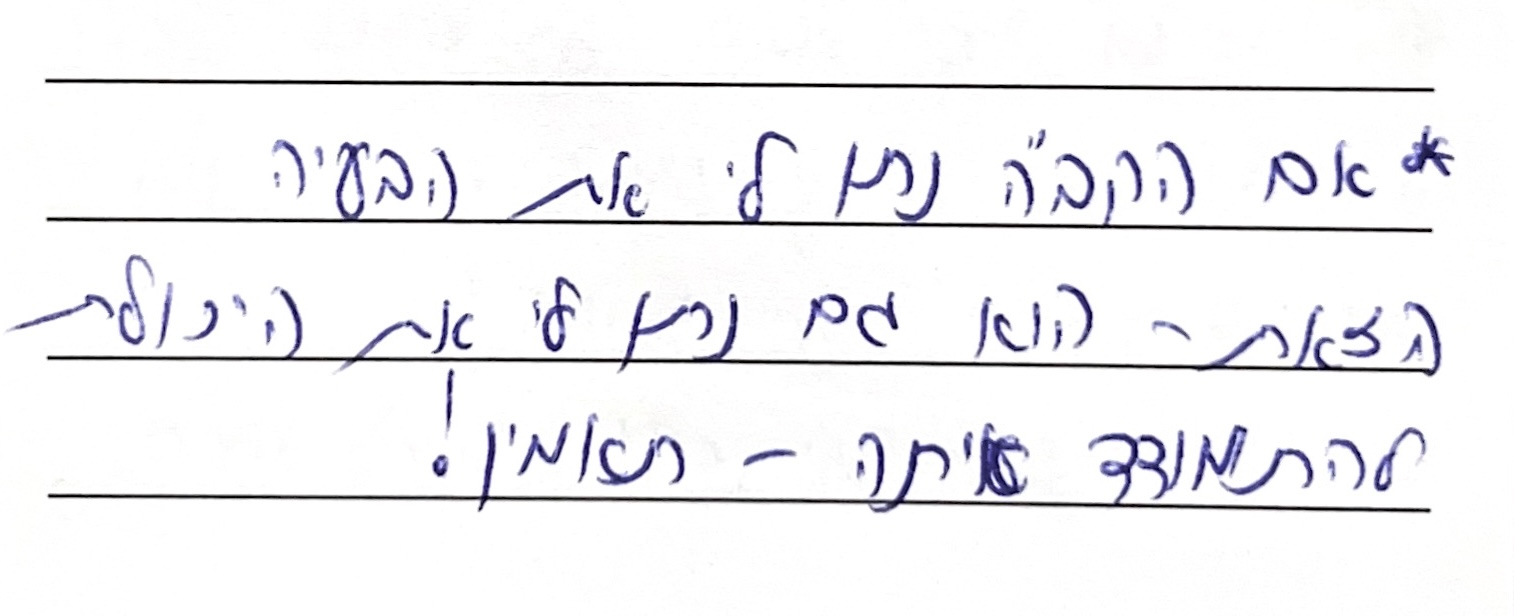 * אם הקב"ה נתן לי את הבעיה
הזאת - הוא גם נתן לי את היכולת
להתמודד איתה - תאמין!